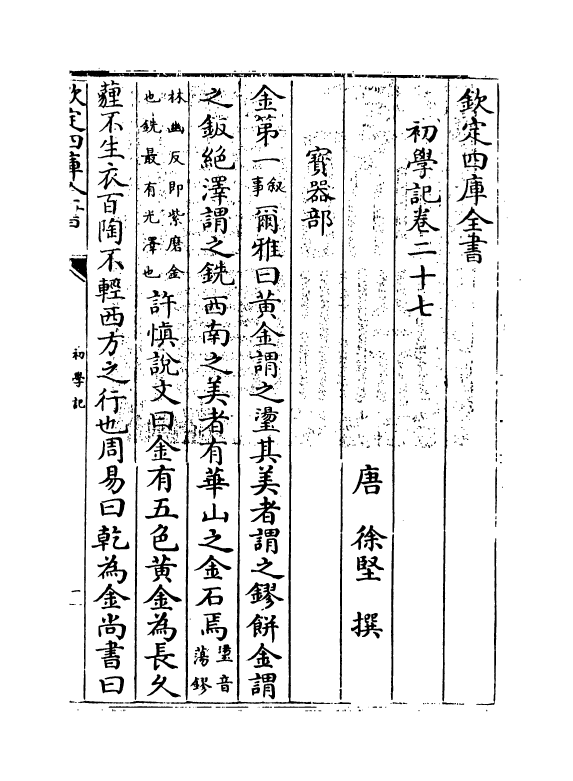 欽定四庫全書
初學記卷二十七
唐 徐堅 撰
寶器部
金第一敘事爾雅曰黃金謂之璗其美者謂之鏐餅金謂
之鈑絶澤謂之銑西南之美者有華山之金石焉璗音蕩鏐
林幽反即紫磨金也銑最有光澤也許慎說文曰金有五色黃金為長久
薶不生衣百陶不輕西方之行也周易曰乾為金尚書曰
欽定四庫全書
初學記
一